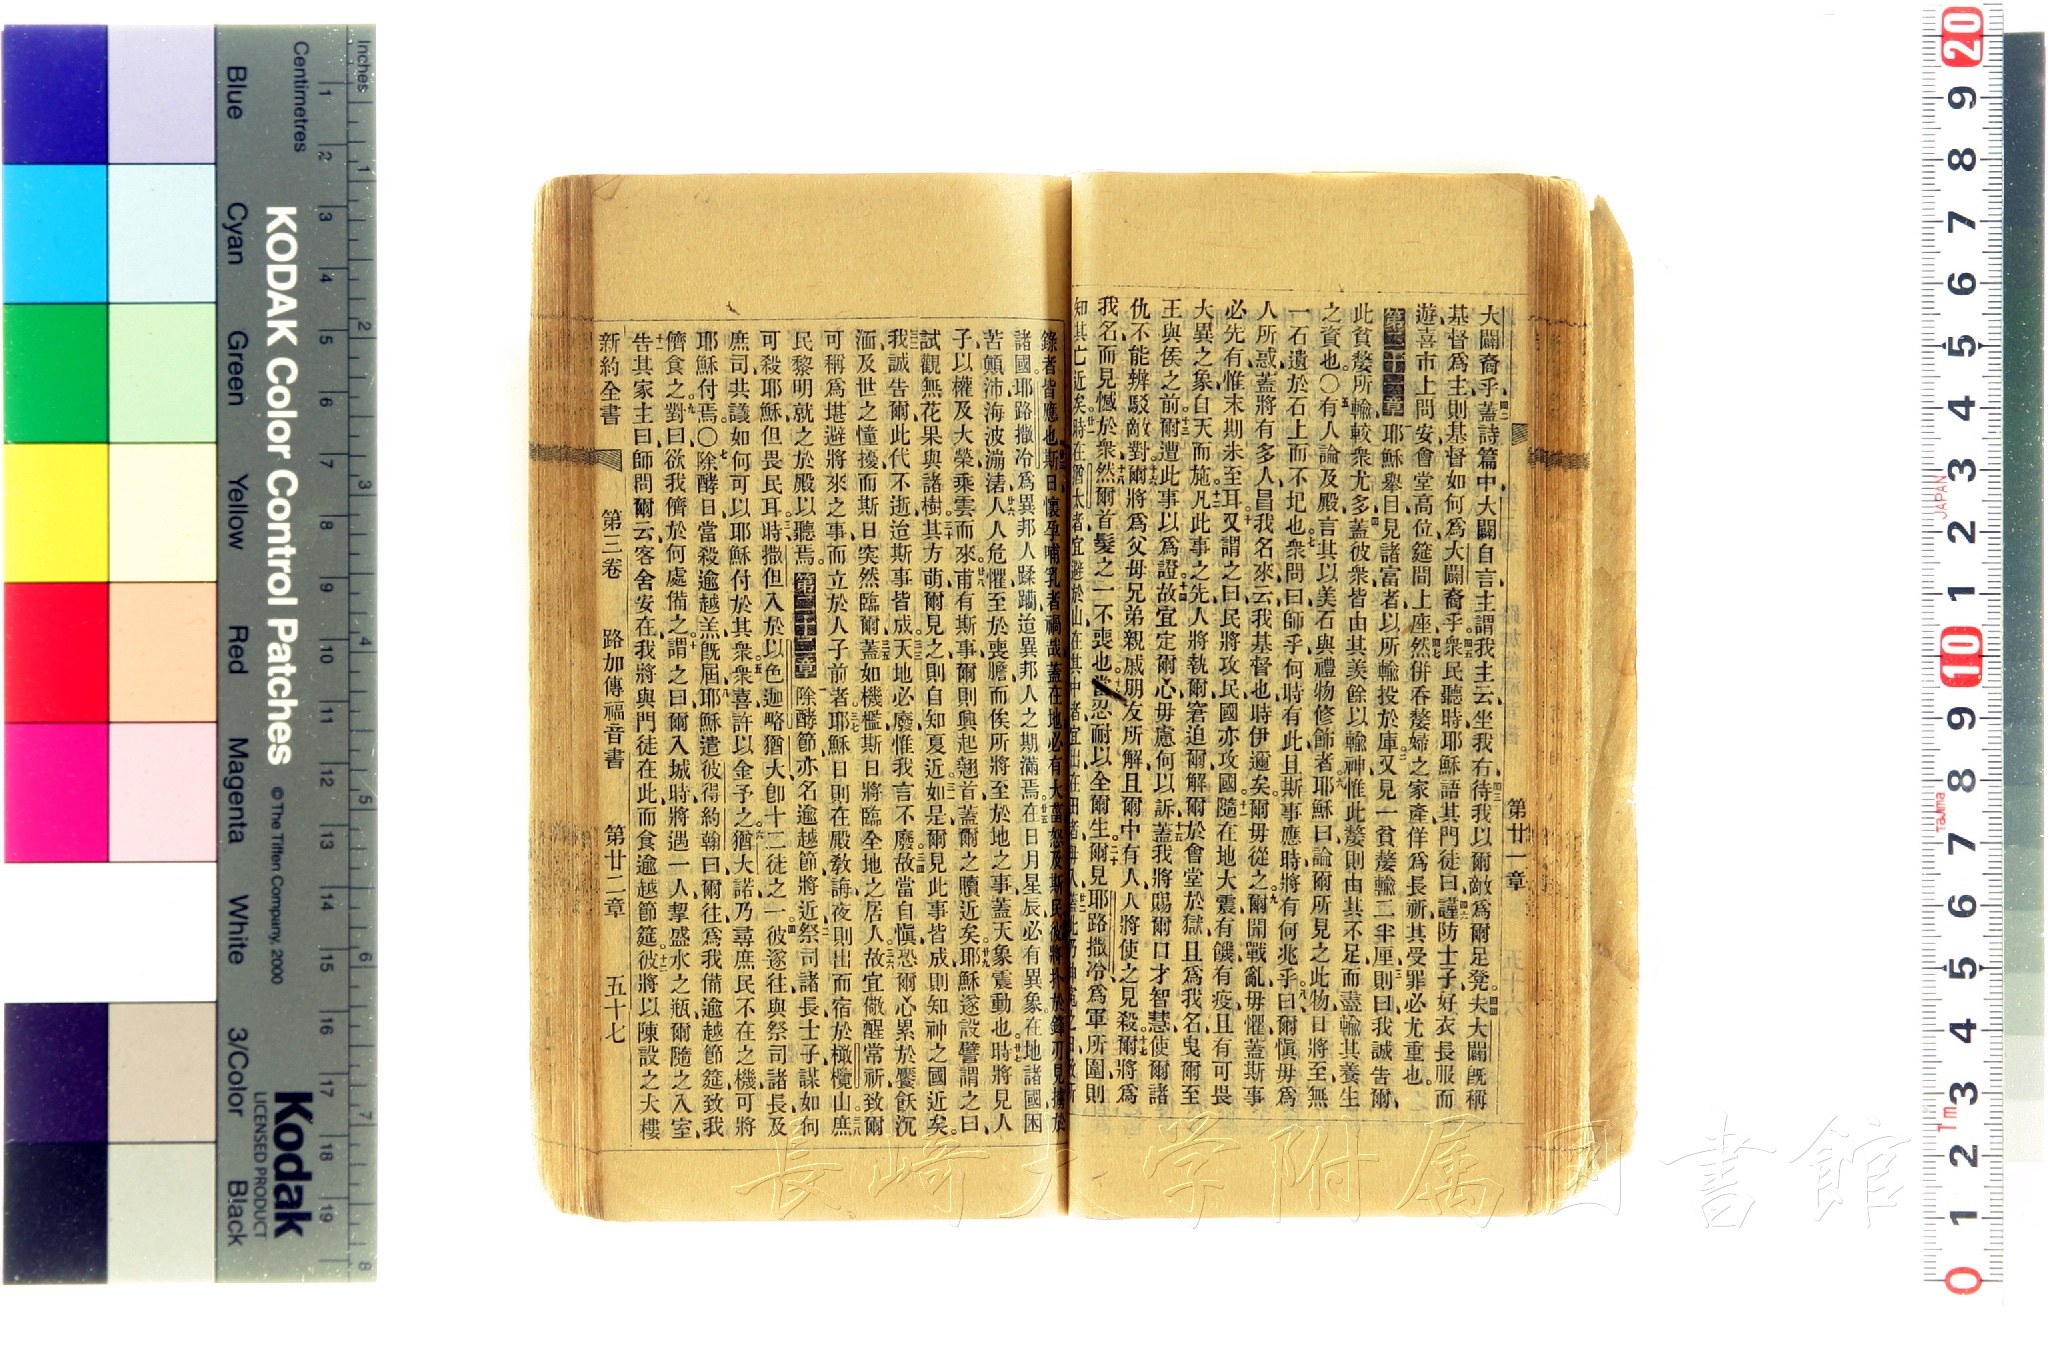 大闢裔乎、蓋詩篇中大闢自言、主謂我主云、坐我右、待我以爾敵爲爾足凳、夫大闢旣稱
基督爲主、則基督如何爲大闢裔乎。衆民聽時、耶穌語其門徒曰、謹防士子、好衣長服而
遊、喜市上問安、會堂高位、筵間上座、然併吞嫠婦之家產、佯爲長祈、其受罪必尤重也。
第二十一章 耶穌舉目、見諸富者以所輸投於庫、又見一貧嫠輸二半厘、則曰、我誠告爾、
此貧嫠所輸較衆尤多、蓋彼衆皆由其羡餘以輸神、惟此嫠則由其不足、而盡輸其養生
之資也。〇有人論及殿、言其以美石與禮物修飾者、耶穌曰、論爾所見之此物、日將至、無
一石遺於石上而不圮也。衆問曰、師乎、何時有此、且斯事應時、將有何兆乎。曰、爾愼毋爲
人所惑、蓋將有多人冒我名來云、我基督也、時伊邇矣、爾毋從之。爾聞戰亂毋懼、蓋斯事
必先有、惟末期未至耳。又謂之曰、民將攻民、國亦攻國、隨在地大震、有饑有疫、且有可畏
大異之象、自天而施。凡此事之先、人將執爾窘迫爾、解爾於會堂於獄、且爲我名曳爾至
王與侯之前。爾遭此事以爲證、故宜定爾心、毋慮何以訴、蓋我將賜爾口才智慧、使爾諸
仇不能辨駁敵對。爾將爲父母兄弟親戚朋友所解、且爾中有人、人將使之見殺。爾將爲
我名而見憾於衆、然爾首髮之一不喪也。當忍耐以全爾生。爾見耶路撒冷爲軍所圍、則
知其亡近矣、時在猶太者、宜避於山、在其中者宜出、在田者毋入、蓋此乃伸冤之日、致所
第廿一章
錄者皆應也。斯日懷孕哺乳者禍哉、蓋在地必有大
諸國、耶路撒冷爲異邦人蹂躪、迨異邦人之期滿焉。在日月星辰必有異象、在地諸國困
苦顛沛、海波漰湱、人人危懼、至於喪膽、而俟所將至於地之事、蓋天象震動也。時將見人
子以權及大榮乘雲而來。甫有斯事、爾則興起翹首、蓋爾之贖近矣。耶穌遂設譬謂之曰、
試觀無花果與諸樹、其方萌、爾見之、則自知夏近、如是爾見此事皆成、則知神之國近矣。
我誠告爾、此代不逝、迨斯事皆成、天地必廢、惟我言不廢。故當自愼、恐爾心累於饜飫沉
湎、及世之憧擾、而斯日突然臨爾、蓋如機檻、斯日將臨全地之居人、故宜儆醒常祈、致爾
可稱爲堪避將來之事、而立於人子前者。耶穌日則在殿敎誨、夜則出而宿於橄欖山、庶
民黎明就之於殿以聽焉。第二十二章 除酵節亦名逾越節將近、祭司諸長士子、謀如何
可殺耶穌、但畏民耳。時撒但入於以色迦畧猶大、卽十二徒之一、彼遂往與祭司諸長及
庶司共議、如何可以耶穌付於其衆、衆喜、許以金予之、猶大諾、乃尋庶民不在之機、可將
耶穌付焉。〇除酵日當殺逾越羔旣屆、耶穌遣彼得約翰曰、爾往爲我備逾越節筵、致我
儕食之。對曰、欲我儕於何處備之。謂之曰、爾入城時、將遇一人挈盛水之瓶、爾隨之入室、
告其家主曰、師問爾云、客舍安在、我將與門徒在此而食逾越節筵、彼將以陳設之大樓
新約全書 第三卷 路加傳福音書 第廿二章 五十七
Inches
Centimetres
KODAK Color Control Patches
© The Tiffen Company, 2000
Kodak
LICENSED PRODUCT
Blue Cyan Green Yellow Red Magenta White 3/Color Black
1 2 3 4 5 6 7 8 9 10 11 12 13 14 15 16 17 18 19
1 2 3 4 5 6 7 8
20 9 8 7 6 5 4 3 2 1 10 9 8 7 6 5 4 3 2 1 0
JAPAN
Tajima
Tm
長崎大学附属図書館